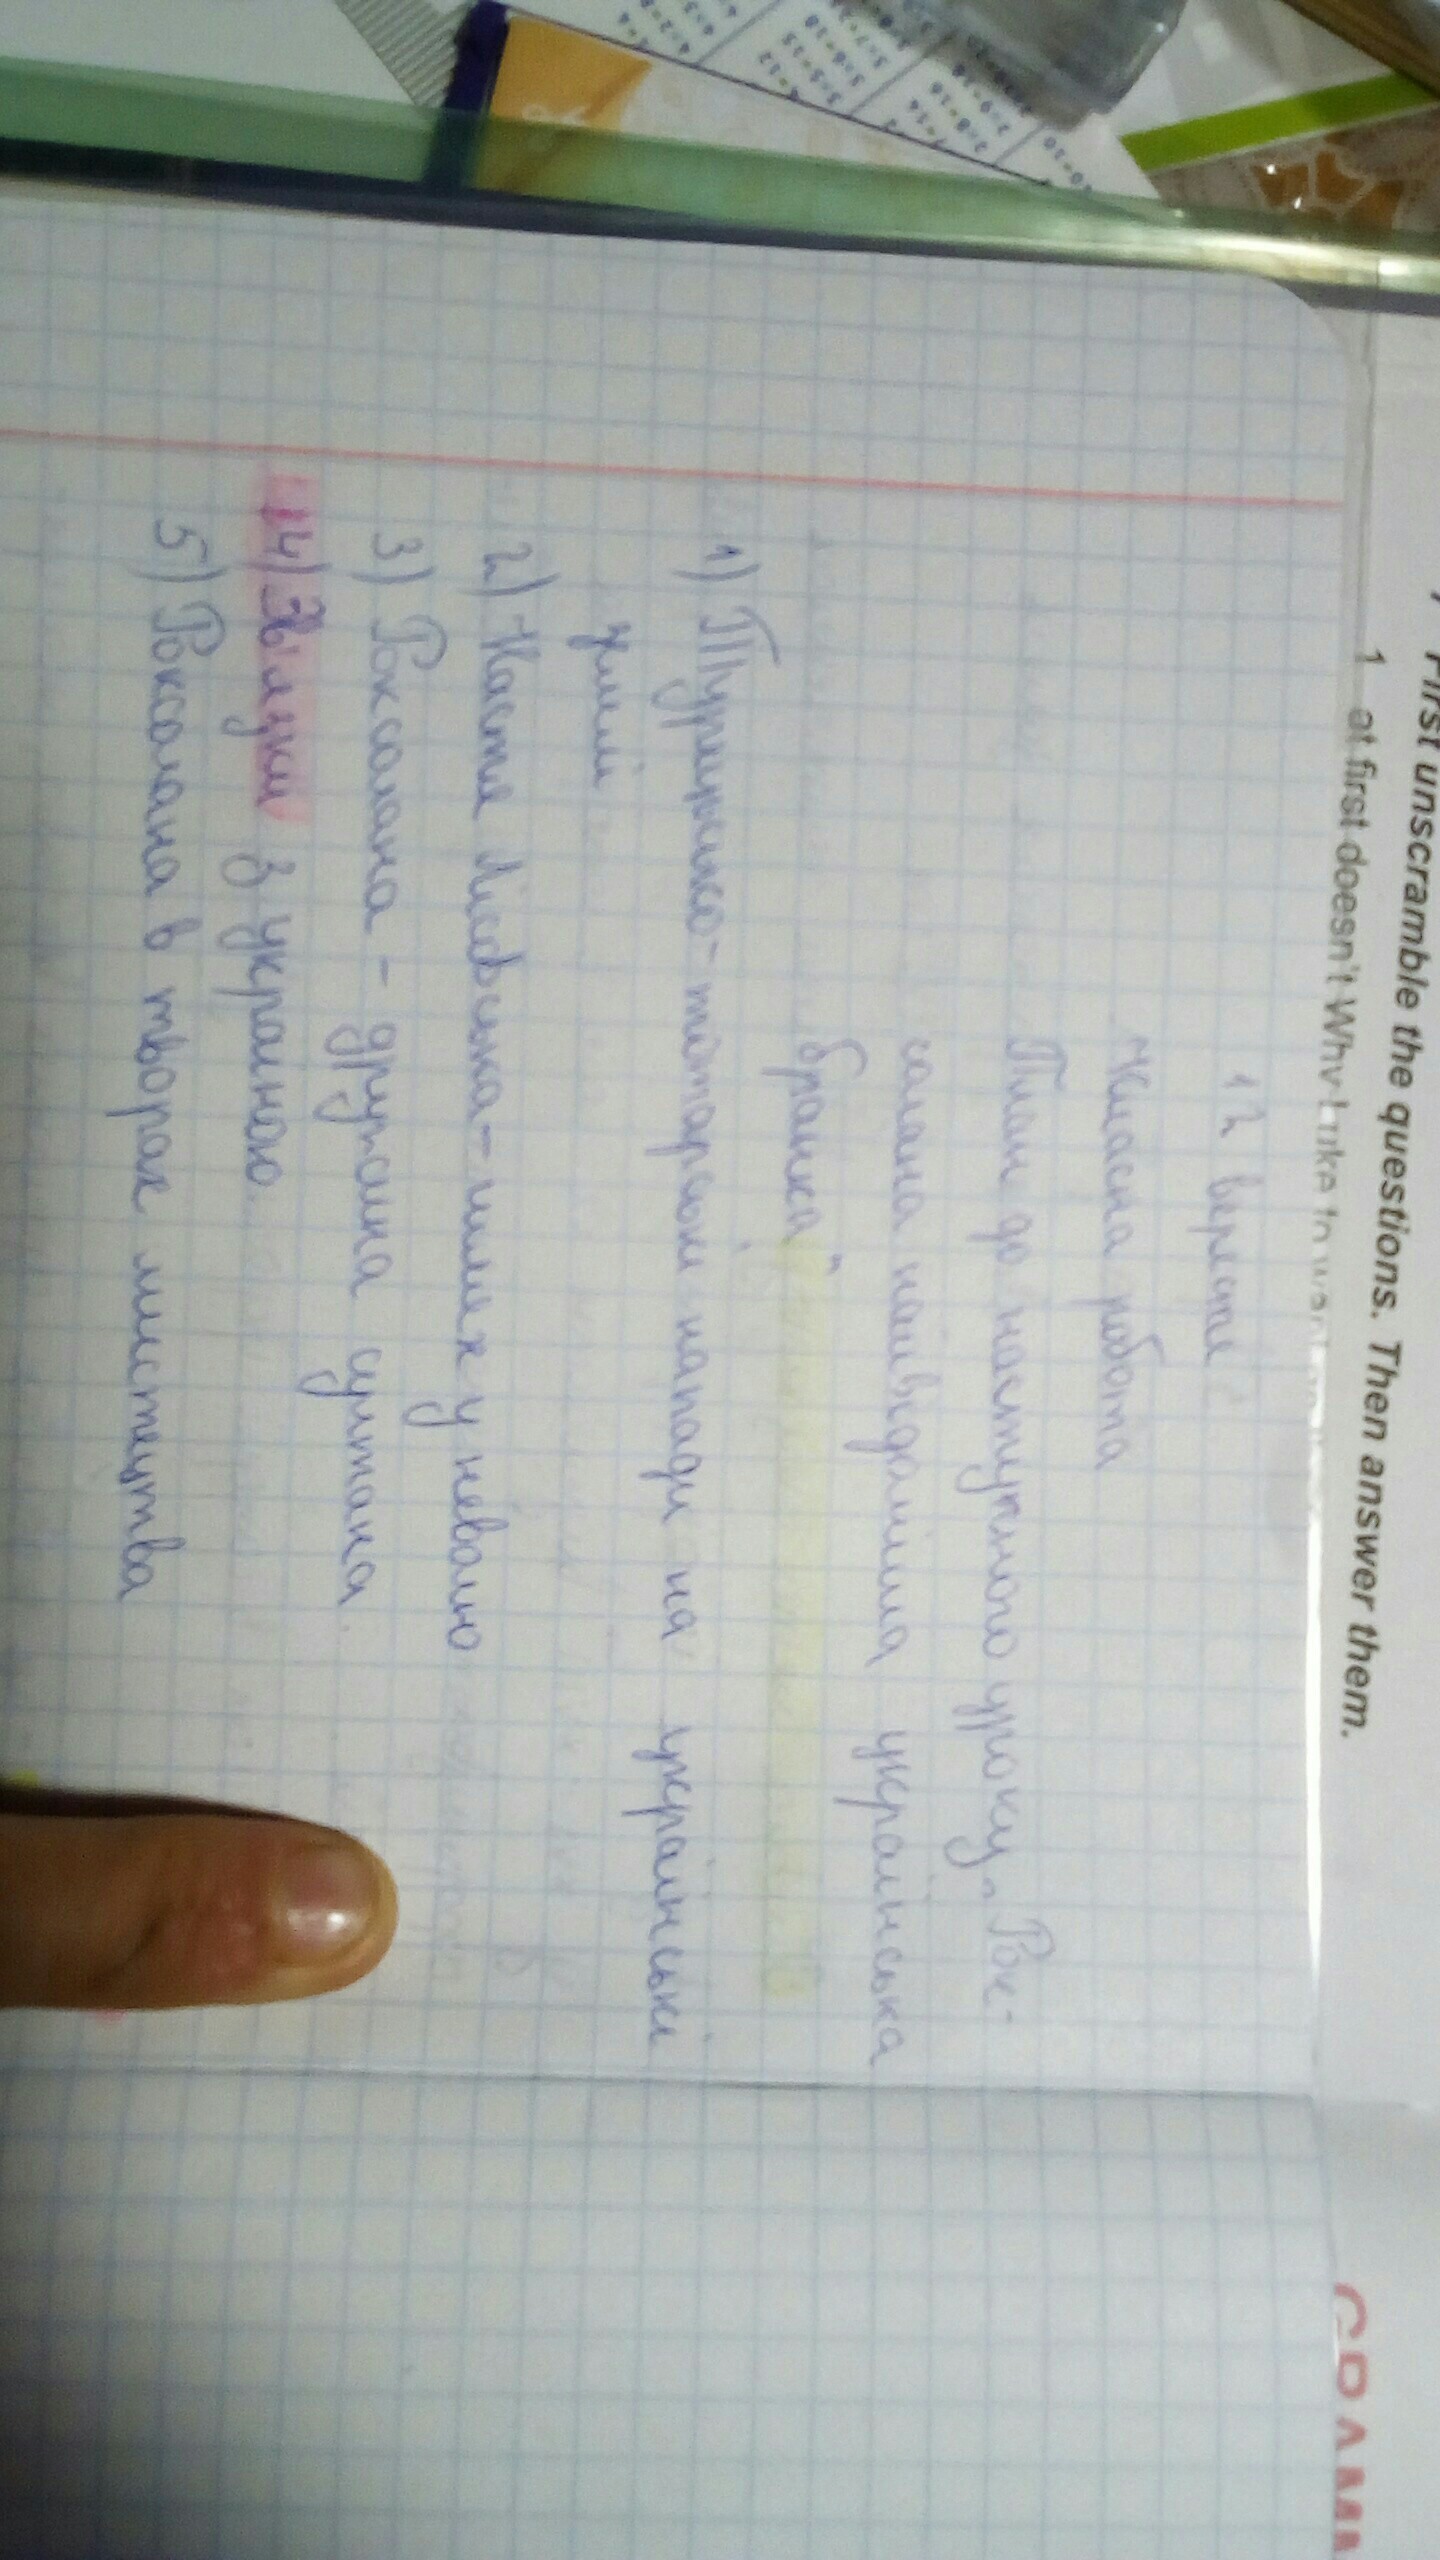 First unscramble the questions. Then answer them.
1 at first doesn't Why Luke to want
GRAMM
12 вересня
Класна робота
План до наступного уроку „Рок-
солана найвідоміша українська
бранка"
1) Турецько-татарські напади на українські
землі
2) Настя Лісовська - шлях у неволю
3) Роксолана - дружина султана
4) Зв'язки з україною.
5) Роксолана в творах мистецтва